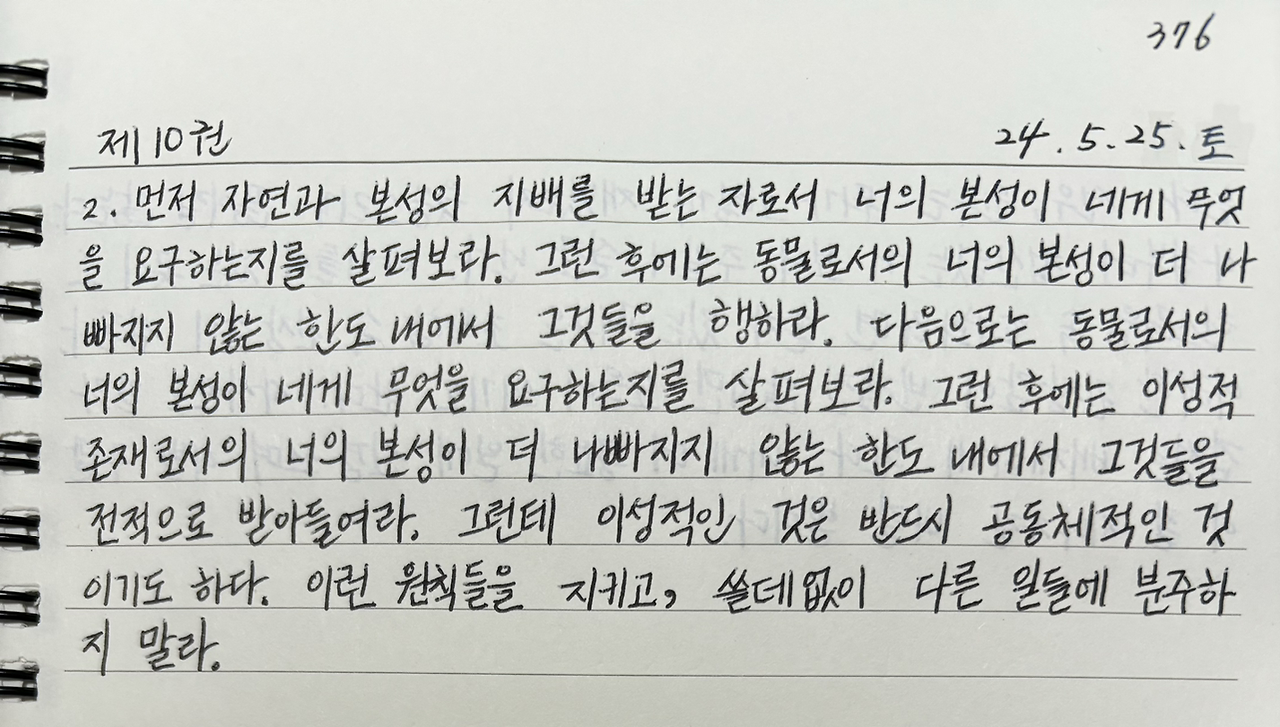 376
제10권 24.5.25.토
2. 먼저 자연과 본성의 지배를 받는 자로서 너의 본성이 네게 무엇
을 요구하는지를 살펴보라. 그런 후에는 동물로서의 너의 본성이 더 나
빠지지 않는 한도 내에서 그것들을 행하라. 다음으로는 동물로서의
너의 본성이 네게 무엇을 요구하는지를 살펴보라. 그런 후에는 이성적
존재로서의 너의 본성이 더 나빠지지 않는 한도 내에서 그것들을
전적으로 받아들여라. 그런데 이성적인 것은 반드시 공동체적인 것
이기도 하다. 이런 원칙들을 지키고, 쓸데없이 다른 일들에 분주하
지 말라.